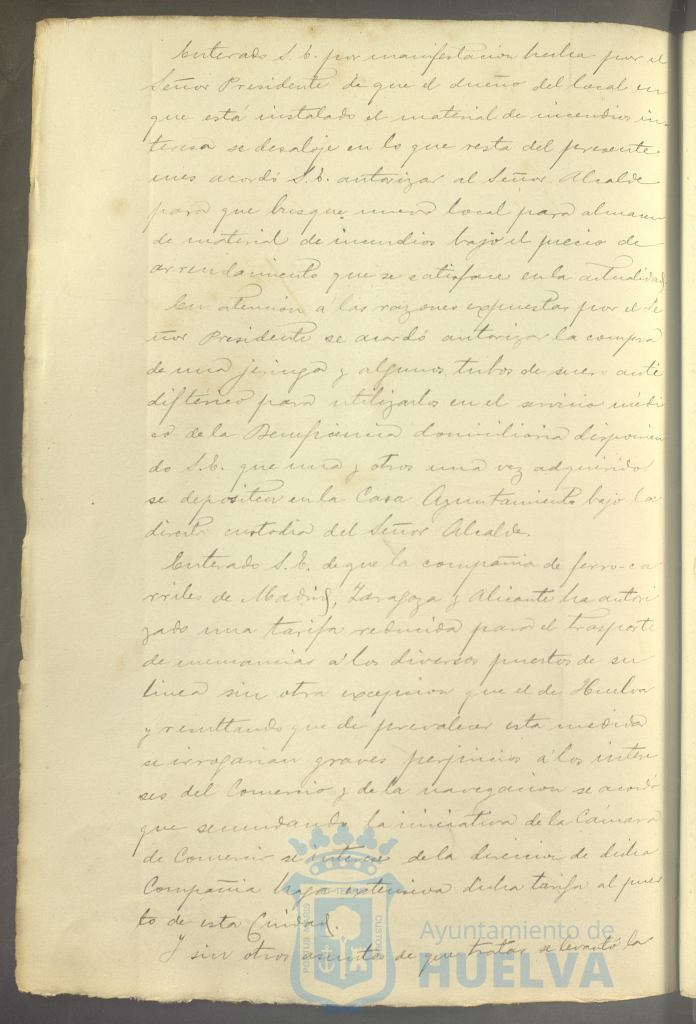 Enterado S.E. por manifestacion hecha por el
Señor Presidente de que el dueño del local en
que está instalado el material de incendios in-
teresa se desaloje en lo que resta del presente
mes acordó S.E. autorizar al Señor Alcalde
para que busque nuevo local para almacen
de material de incendios bajo el precio de
arrendamiento que se satisface en la actualidad.
En atención á las razones expuestas por el Se
ñor Presidente se acordó autorizar la compra
de una jeringa y algunos tubos de suero anti
diftérico para utilizarlos en el servicio médi
co de la Beneficencia domiciliaria disponien
do S.E. que una y otros una vez adquiridos
se depositen en la Casa Ayuntamiento bajo la
directa custodia del Señor Alcalde.
Enterado S.E. de que la compañia de ferro-ca
rriles de Madrid, Zaragoza y Alicante ha autori
zado una tarifa reducida para el trasporte
de mercancias á los diversos puertos de su
linea sin otra excepcion que el de Huelva
y resultando que de prevalecer esta medida
se irrogarian graves perjuicios á los intere
ses del Comercio y de la navegacion se acordó
que secundando la iniciativa de la Cámara
de Comercio se interese de la direccion de dicha
Compañia haga extensiva dicha tarifa al puer
to de esta Ciudad.
Y sin otros asuntos de que tratar se levantó la
PORTUS MARIS ET TERRAE CUSTODIA
Ayuntamiento de
HUELVA